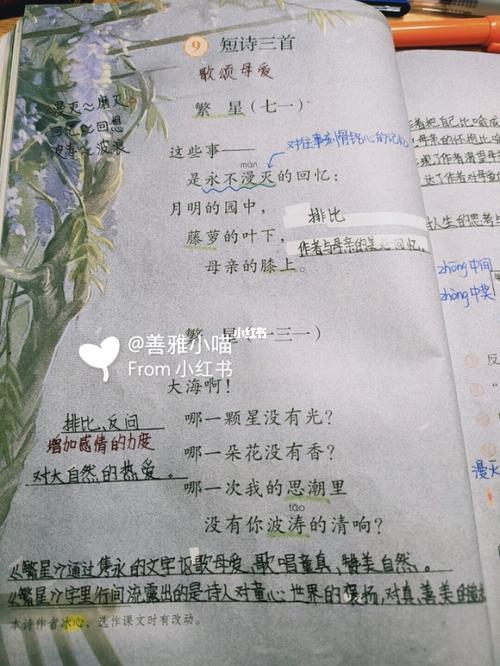 9 短诗三首
歌颂母爱
漫灭~磨灭
回忆~回想
波涛~波浪
繁星（七一）
这些事——
对往事刻骨铭心的记忆
màn
是永不漫灭的回忆：
月明的园中，
排比
藤萝的叶下，
作者与母亲的美好回忆。
母亲的膝上。
繁星（一三一）
小红书
@善雅小喵
From 小红书
大海啊！
排比、反问
增加感情的力度
对大自然的热爱。
哪一颗星没有光？
哪一朵花没有香？
哪一次我的思潮里
tāo
没有你波涛的清响？
《繁星》通过隽永的文字讴歌母爱，歌唱童真，赞美自然。
《繁星》字里行间流露出的是诗人对童心世界的褒扬，对真、善、美的
本诗作者冰心，选作课文时有改动。
者把自己比喻成
母亲的怀抱比
达了作者对母爱
人生的思考与
zhōng中间
zhòng中奖
漫灭